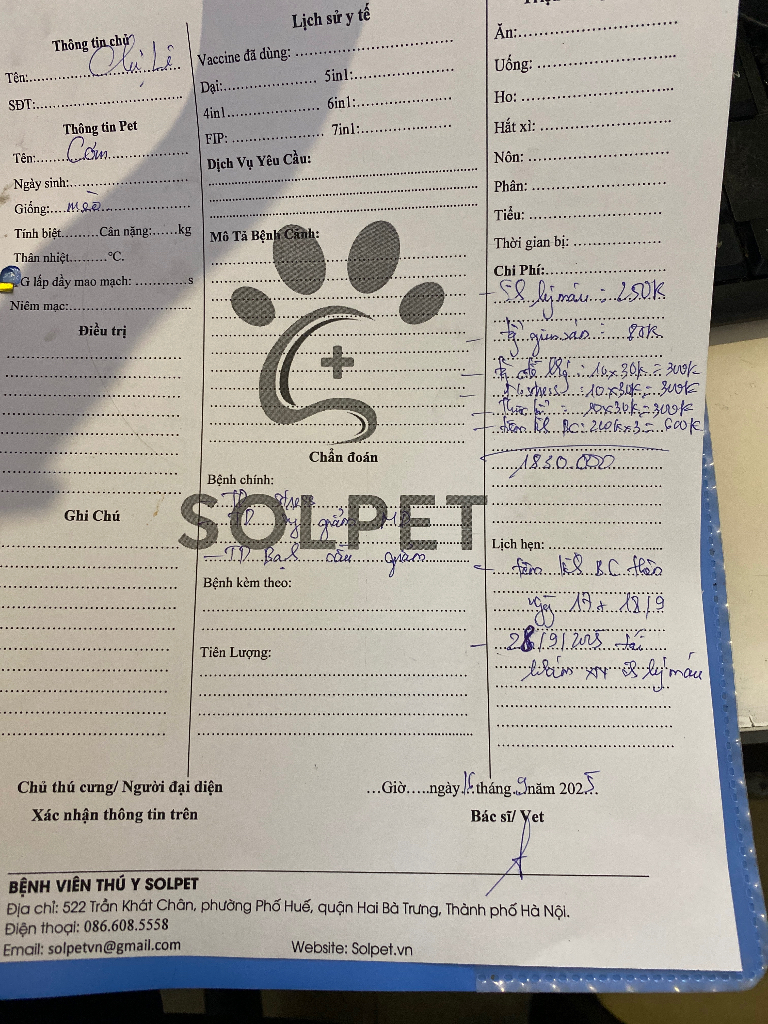 Thông tin chủ
Tên: Chị Lê
SĐT:
Thông tin Pet
Tên: Cơm
Ngày sinh:
Giống: mèo
Tính biệt......... Cân nặng:......kg
Thân nhiệt.........°C.
G lấp đầy mao mạch: ..............s
Niêm mạc:
Điều trị
Ghi Chú
Lịch sử y tế
Vaccine đã dùng:
Dại: 5in1:
4in1 6in1:
FIP: 7in1:
Dịch Vụ Yêu Cầu:
Mô Tả Bệnh Cảnh:
Chẩn đoán
Bệnh chính:
TD
TD giảm
- TD Bạch cầu giảm
SOLPET
Bệnh kèm theo:
Tiên Lượng:
Ăn:
Uống:
Ho:
Hắt xì:
Nôn:
Phân:
Tiểu:
Thời gian bị:
Chi Phí:
- lý máu : 250k
- : 80k
- : 10x30k = 300k
- : 10x30k = 300k
- : 10x30k = 300k
- BC: 200k x 3 = 600k
1830.000
Lịch hẹn:
- BC
17 + 18/9
- 28/9/2025 tái
khám XN lý máu
Chủ thú cưng/ Người đại diện
Xác nhận thông tin trên
...Giờ.....ngày 16 tháng 9 năm 2025
Bác sĩ/ Vet
BỆNH VIÊN THÚ Y SOLPET
Địa chỉ: 522 Trần Khát Chân, phường Phố Huế, quận Hai Bà Trưng, Thành phố Hà Nội.
Điện thoại: 086.608.5558
Email: solpetvn@gmail.com Website: Solpet.vn